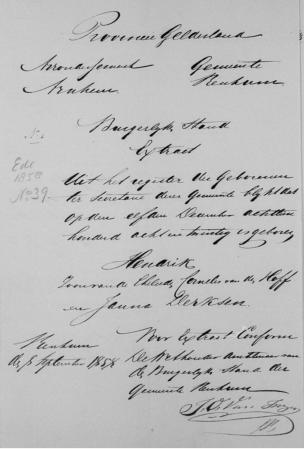 Provincie Gelderland
Arrondissement
Arnhem
Gemeente
Renkum
No.
Burgerlyke Stand
Extract
Edl
1858
No 39.
Uit het register der Geborenen
ter Secretarie dezer Gemeente blykt dat
op den elfden December achttien
honderd acht en twintig is geboren
Hendrik
Zoon van de Cornelis van der Hoff
en Janna Derksen
Renkum
den 8 September 1858
Voor Extract Conform
De Wethouder Ambtenaar van
de Burgerlyke Stand der
Gemeente Renkum